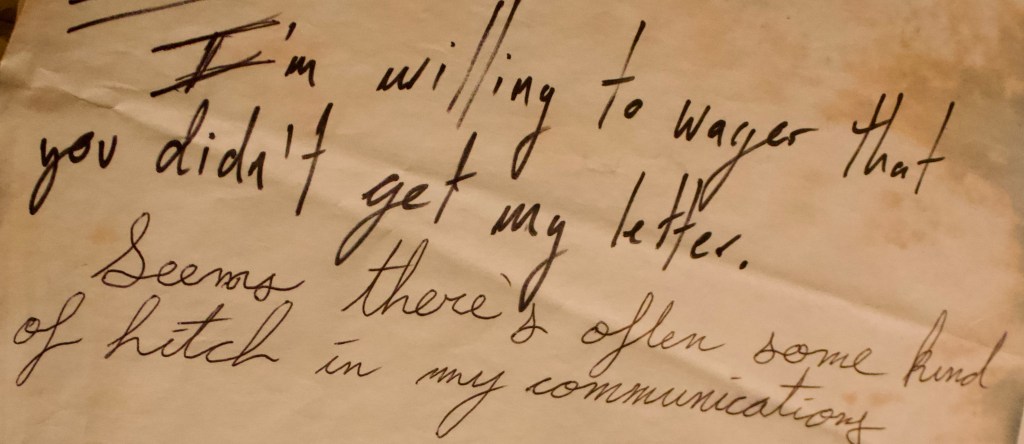 I'm willing to wager that
you didn't get my letter.
Seems there's often some kind
of hitch in my communications